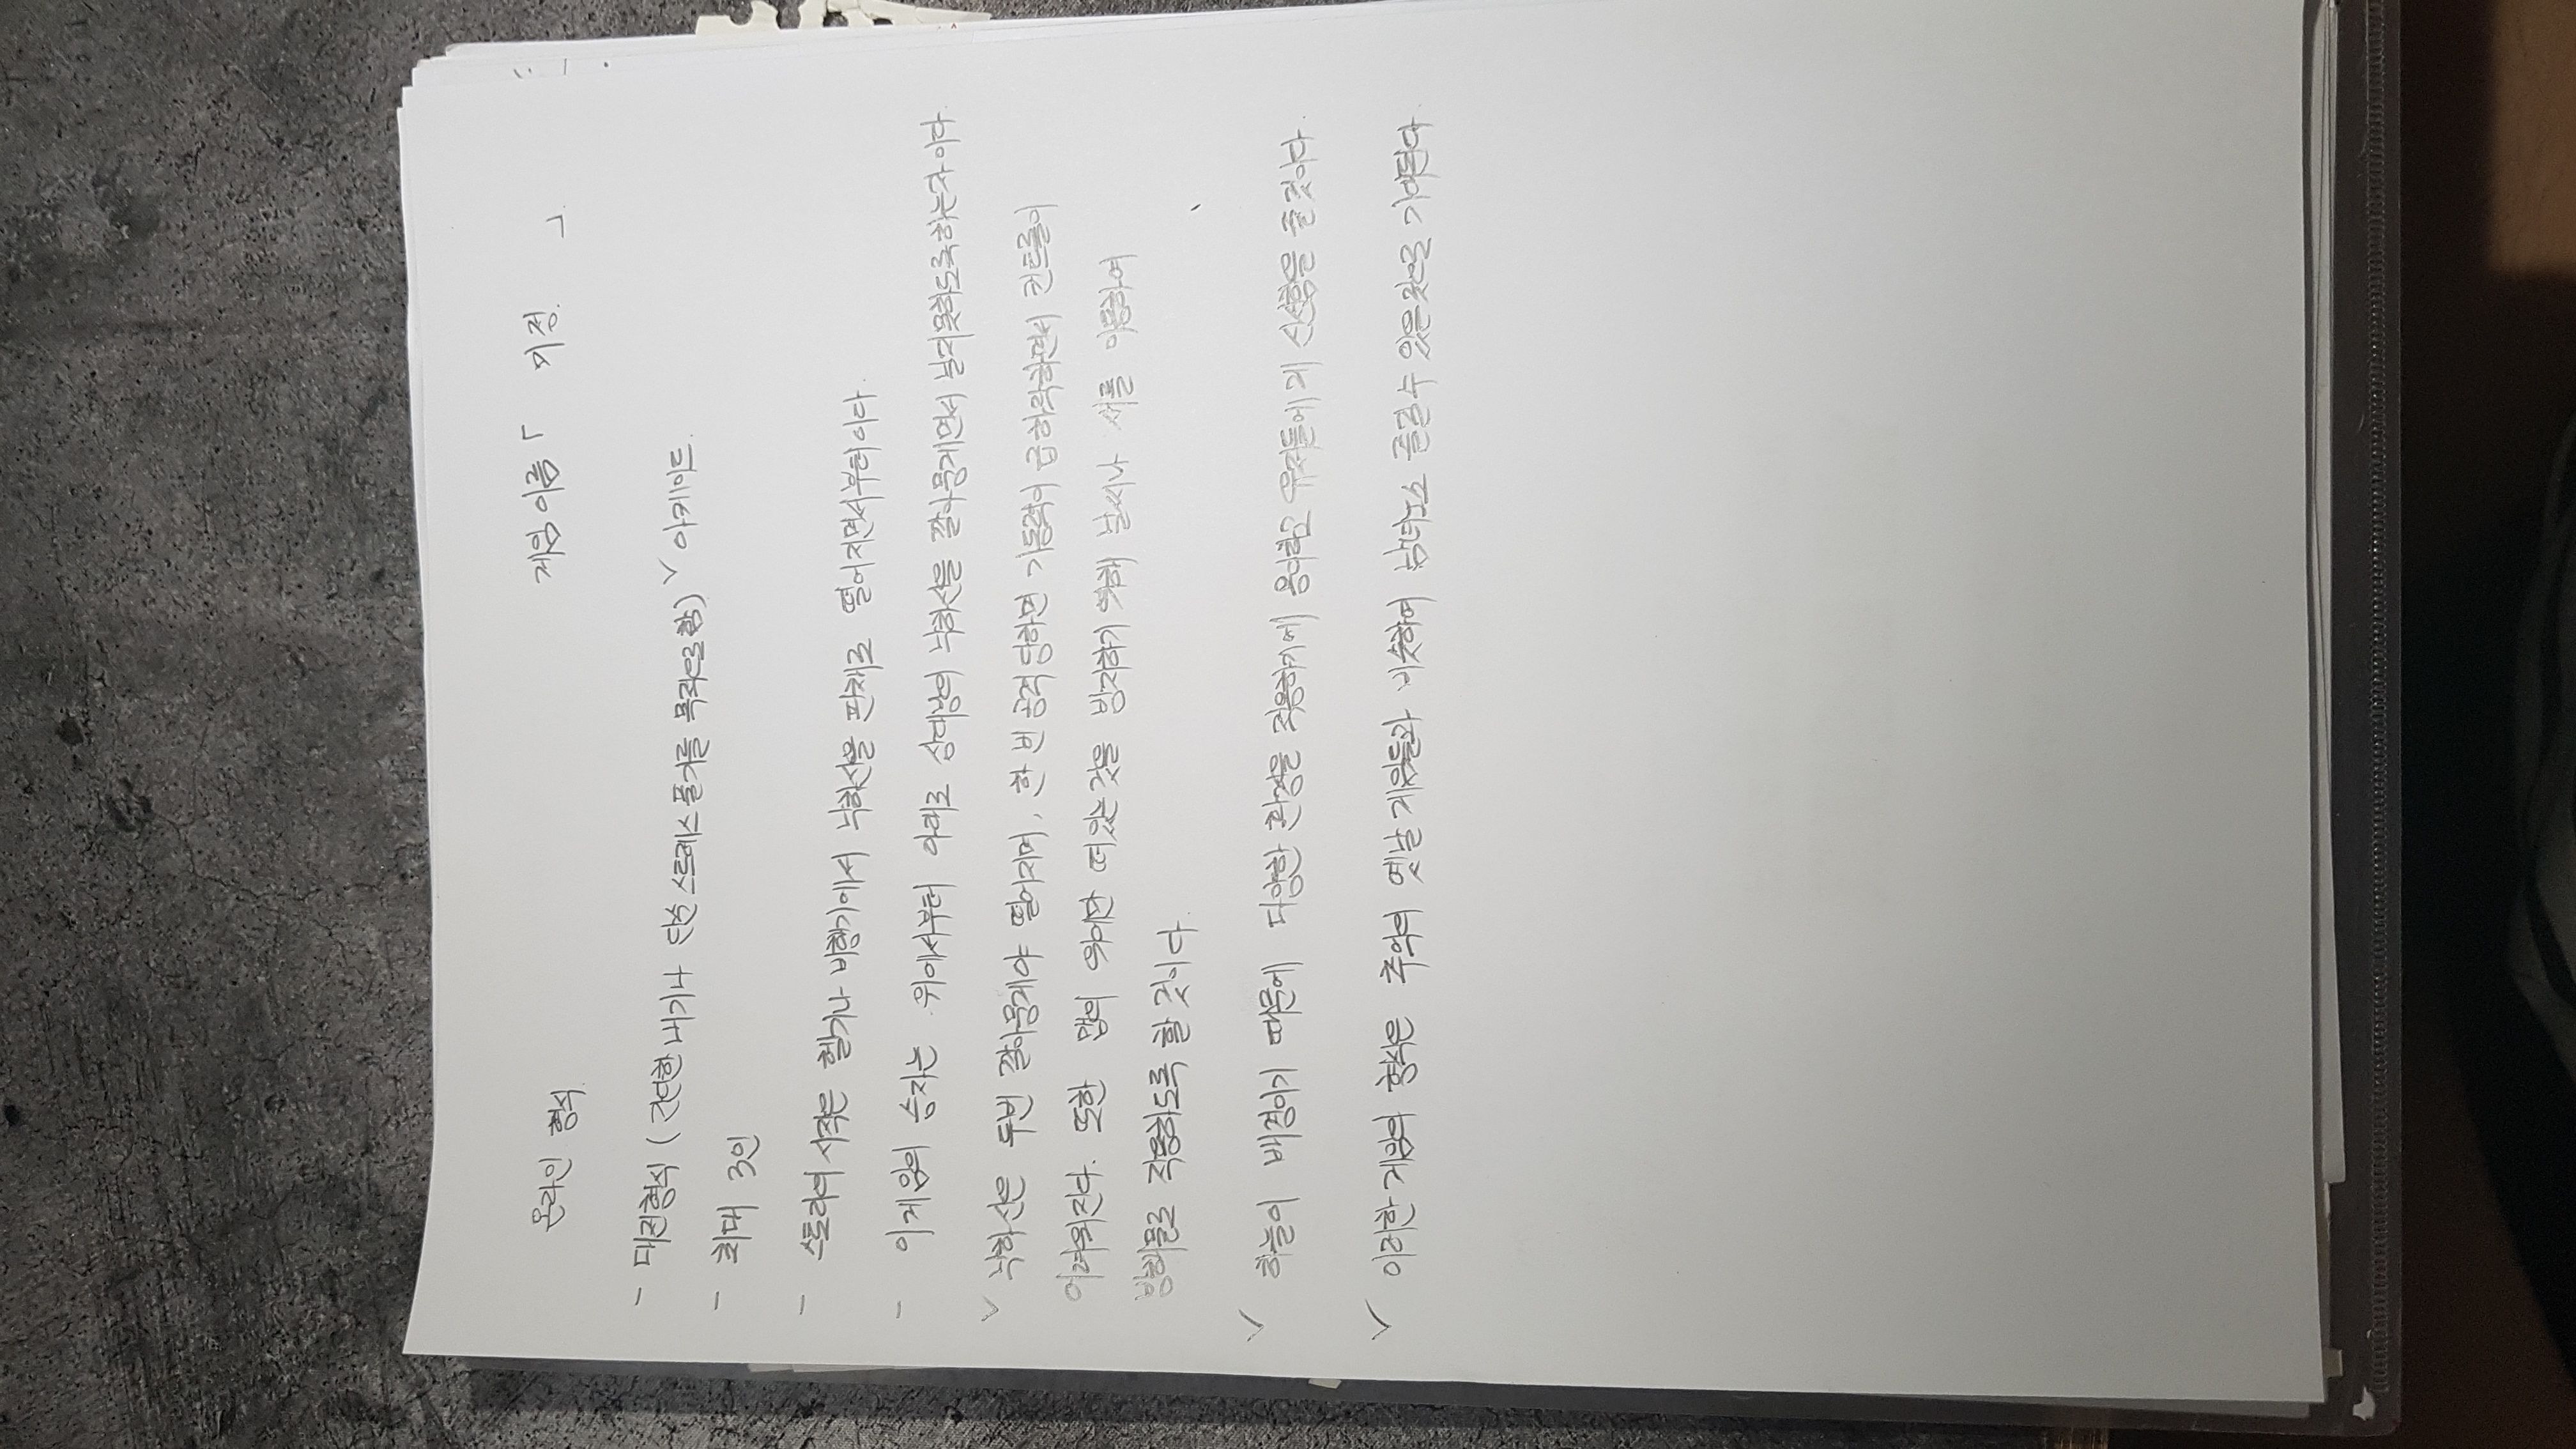 온라인 형식. 게임 이름 「 미정. 」.
- 대전형식 (간단한 내기나 단순 스트레스 풀기를 목적으로 함) ✓ 아케이드.
- 최대 3인
- 스토리의 시작은 헬기나 비행기에서 낙하산을 핀채로 떨어지면서부터이다.
- 이게임의 승자는 위에서부터 아래로 상대방의 낙하산을 깔아뭉게면서 날지못하도록하는자이다.
✓ 낙하산은 두번 깔아뭉게야 떨어지며, 한 번 공격 당하면 기동력이 급하락하면서 컨트롤이
어려워진다. 또한 맵의 위에만 떠있는 것을 방지하기 위해 날씨나 새를 이용하여
방해물로 작용하도록 할 것이다.
✓ 하늘이 배경이기 때문에 다양한 환경을 적용하기에 용이하고 유저들에게 신선함을 줄것이다.
✓ 이러한 게임의 형식은 추억의 옛날 게임들과 비슷하여 남녀노소 즐길수 있을것으로 기대된다.